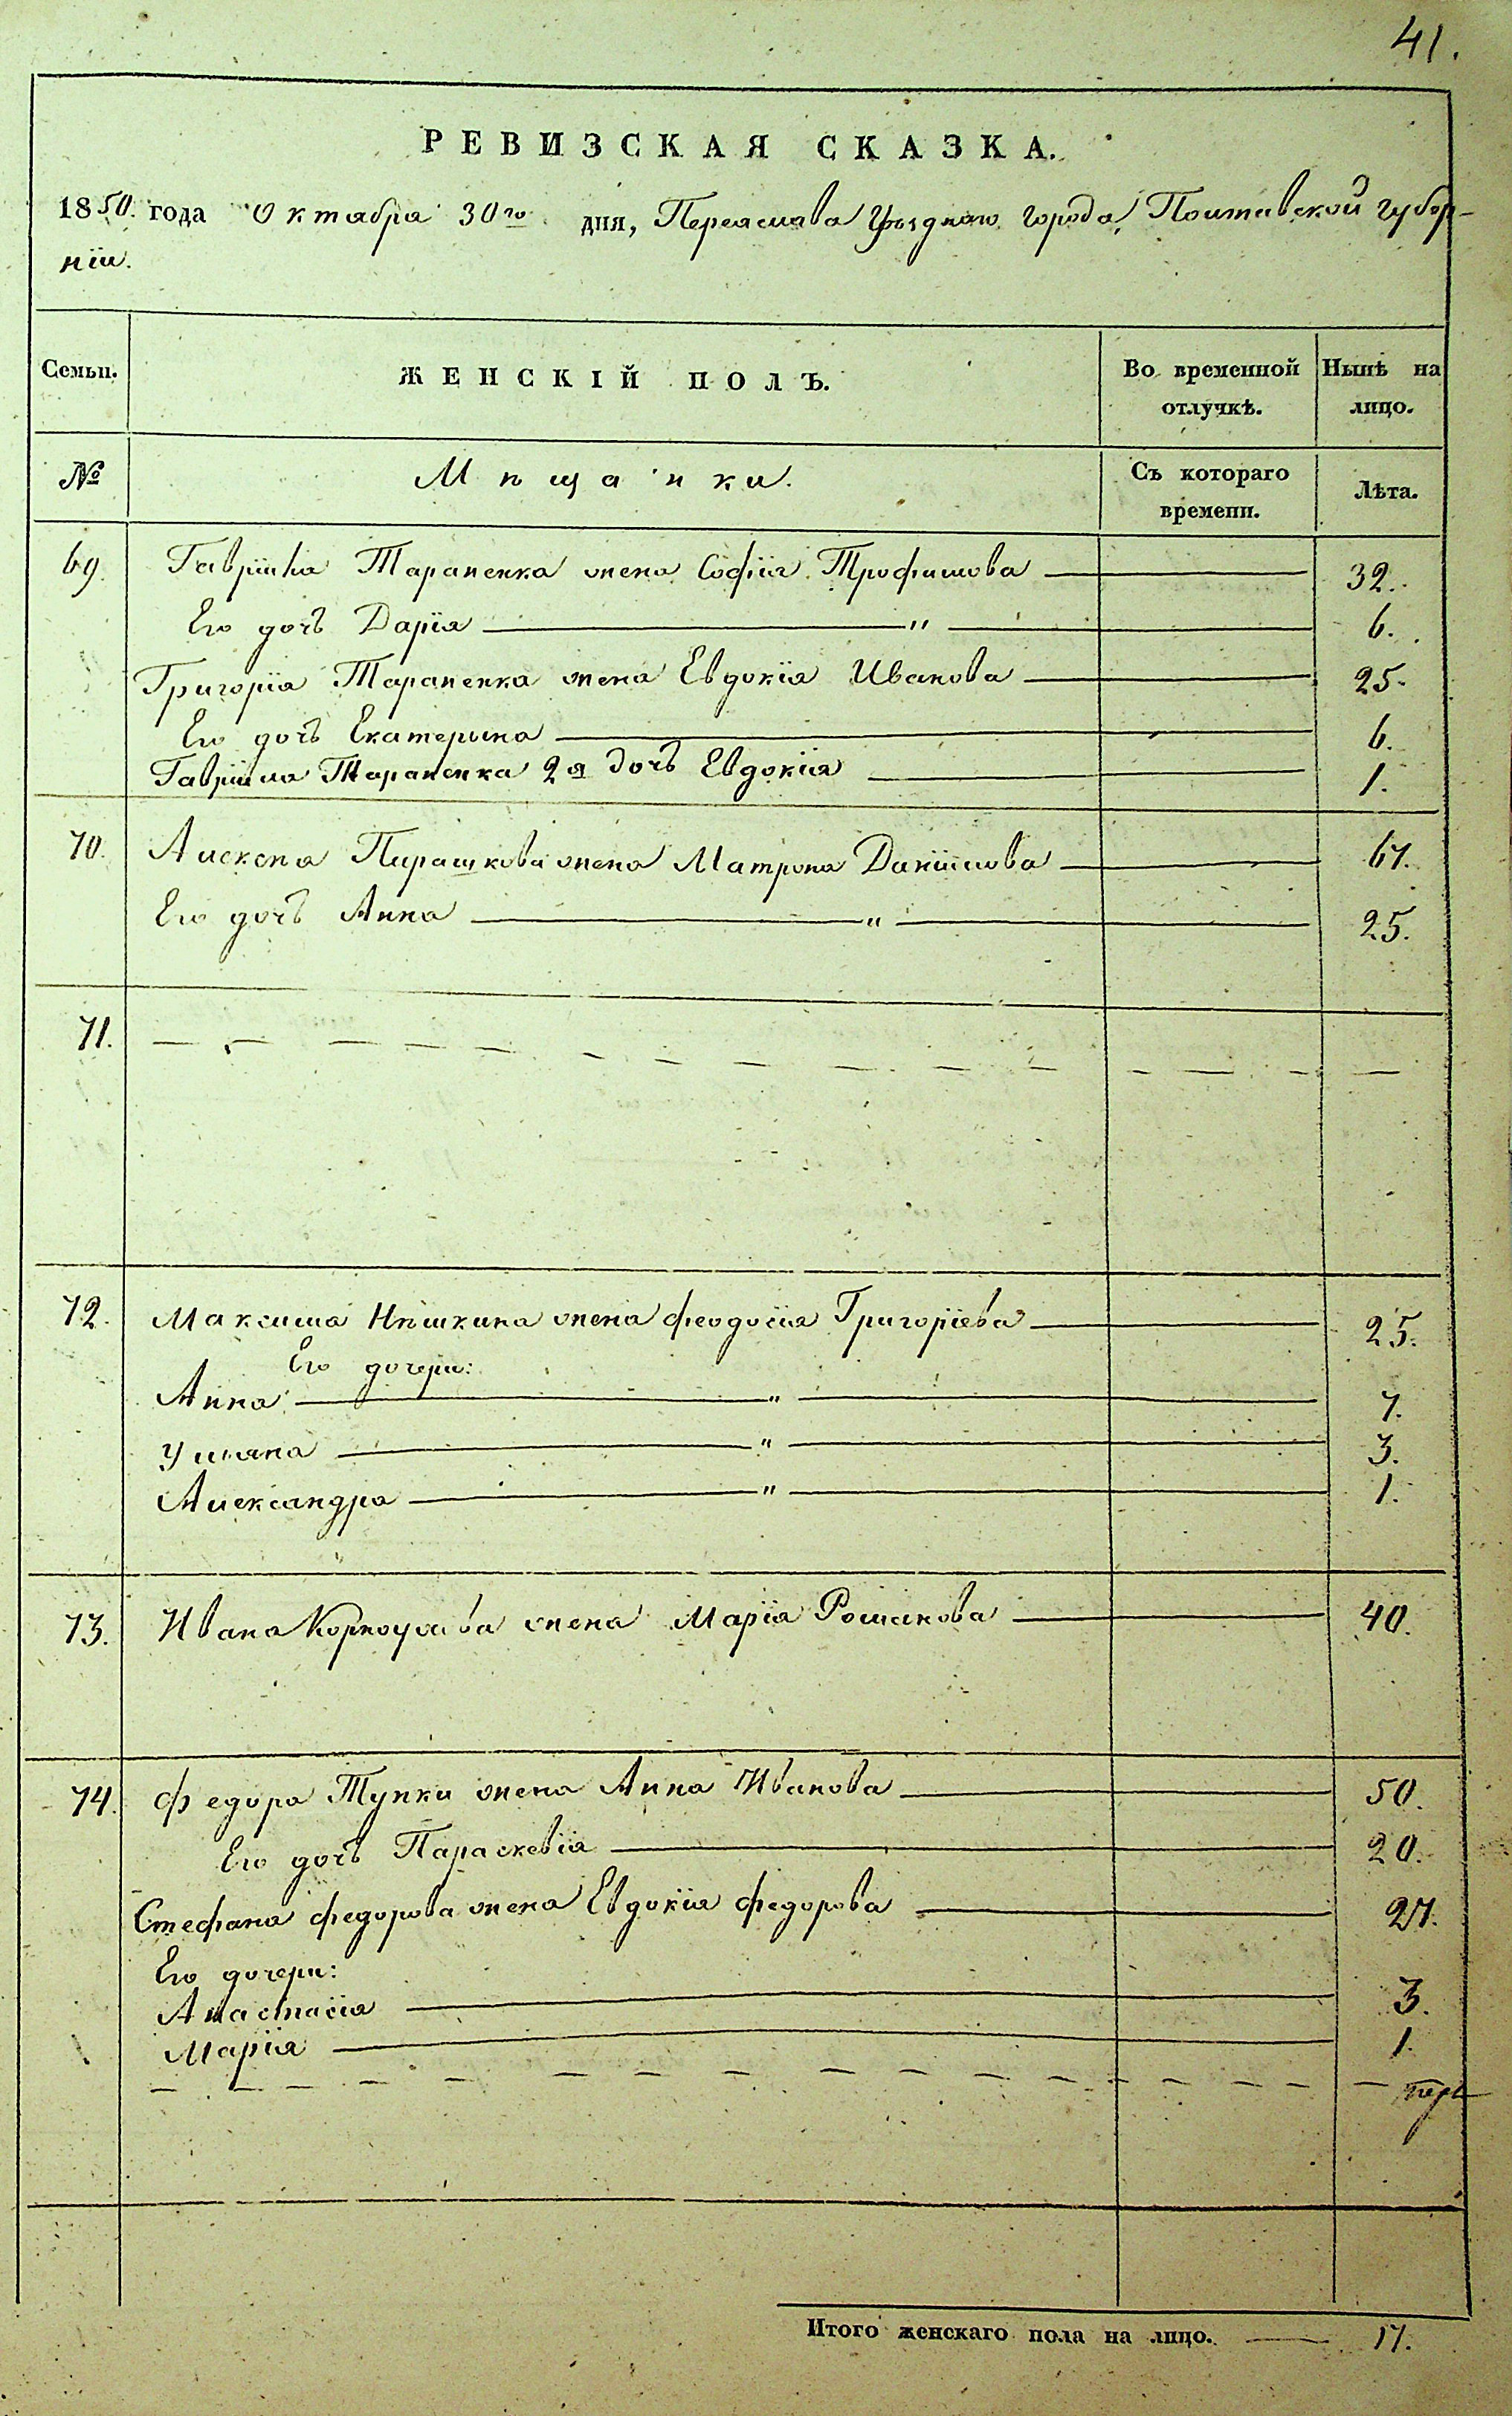 41.
РЕВИЗСКАЯ СКАЗКА.
1850. года Октября 30го дня, Переяслава Уѣзднаго города, Полтавской губер-
нїи.
Семьи. ЖЕНСКІЙ ПОЛЪ. Во временной отлучкѣ. Нынѣ на лицо.
№ Мѣщанки. Съ котораго времени. Лѣта.
69. Гаврїила Тараненка жена Софїя Трофимова 32.
Его дочь Дарїя " 6.
Григорїя Тараненка жена Евдокїя Иванова 25.
Его дочь Екатерына 6.
Гаврїила Тараненка 2я дочь Евдокїя 1.
70. Алексѣя жена Матрона Данїилова 67.
Его дочь Анна " 25.
71.
72. Максима Нѣшкина жена Феодосїя Григорїева 25.
Его дочери:
Анна " 7.
Улїяна " 3.
Александра " 1.
73. Ивана жена Марїя Романова 40.
74. Федора Тупки жена Анна Иванова 50.
Его дочь Параскевїя 20.
Стефана Федорова жена Евдокїя Федорова 27.
Его дочери:
Анастасїя 3.
Марїя 1.
Итого женскаго пола на лицо. 17.